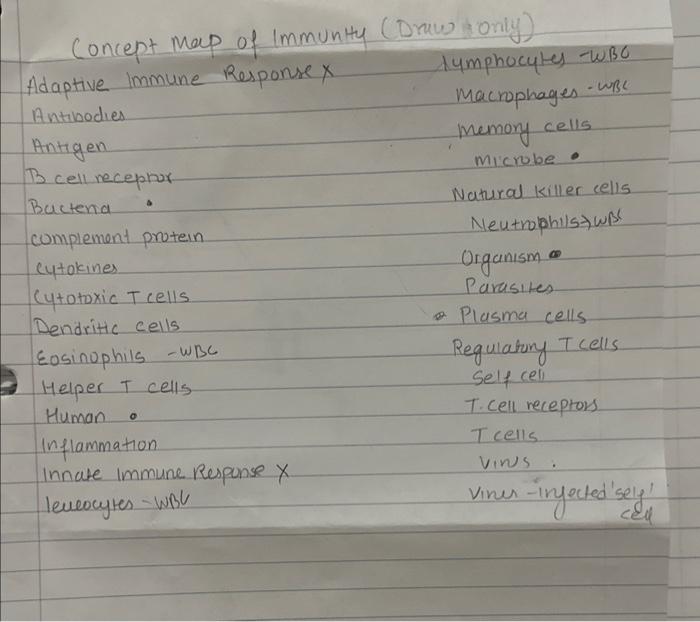 Concept Map of Immunity (Draw only)
Adaptive Immune Response x
Antibodies
Antigen
B cell receptor
Bacteria •
complement protein
cytokines
Cytotoxic T cells
Dendritic cells
Eosinophils - WBC
Helper T cells
Human •
Inflammation
Innate Immune Response x
leucocytes - WBC
Lymphocytes - WBC
Macrophages - WBC
Memory cells
Microbe •
Natural Killer cells
Neutrophils → WBC
Organism •
Parasites
Plasma cells
Regulatory T cells
Self cell
T. Cell receptors
T cells
Virus .
Virus - infected 'self'
cell